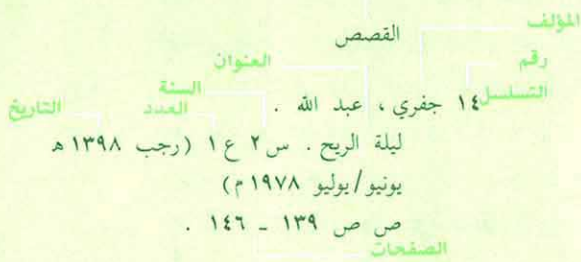 المؤلف
القصص
رقم
التسلسل
العنوان
السنة
العدد
التاريخ
١٤ جفري ، عبد الله .
ليلة الريح . س ٢ ع ١ (رجب ١٣٩٨ هـ
يونيو/يوليو ١٩٧٨ م)
ص ص ١٣٩ - ١٤٦ .
الصفحات